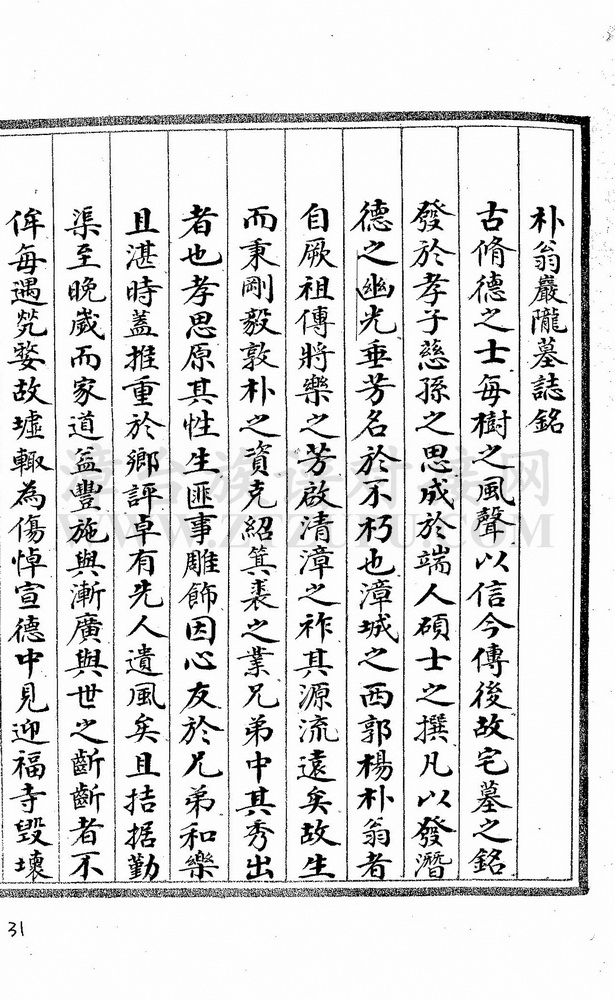 朴翁巖隴墓誌銘
古脩德之士每樹之風聲以信今傳後故宅墓之銘
發於孝子慈孫之思成於端人碩士之撰凡以發潛
德之幽光垂芳名於不朽也漳城之西郭楊朴翁者
自厥祖傳將樂之芳啟清漳之祚其源流遠矣故生
而秉剛毅敦朴之資克紹箕裘之業兄弟中其秀出
者也孝思原其性生匪事雕飾因心友於兄弟和樂
且湛時蓋推重於鄉評卓有先人遺風矣且拮据勤
渠至晚歲而家道益豐施與漸廣與世之齗齗者不
侔每遇煢嫠故墟輙為傷悼宣德中見迎福寺毀壞
31